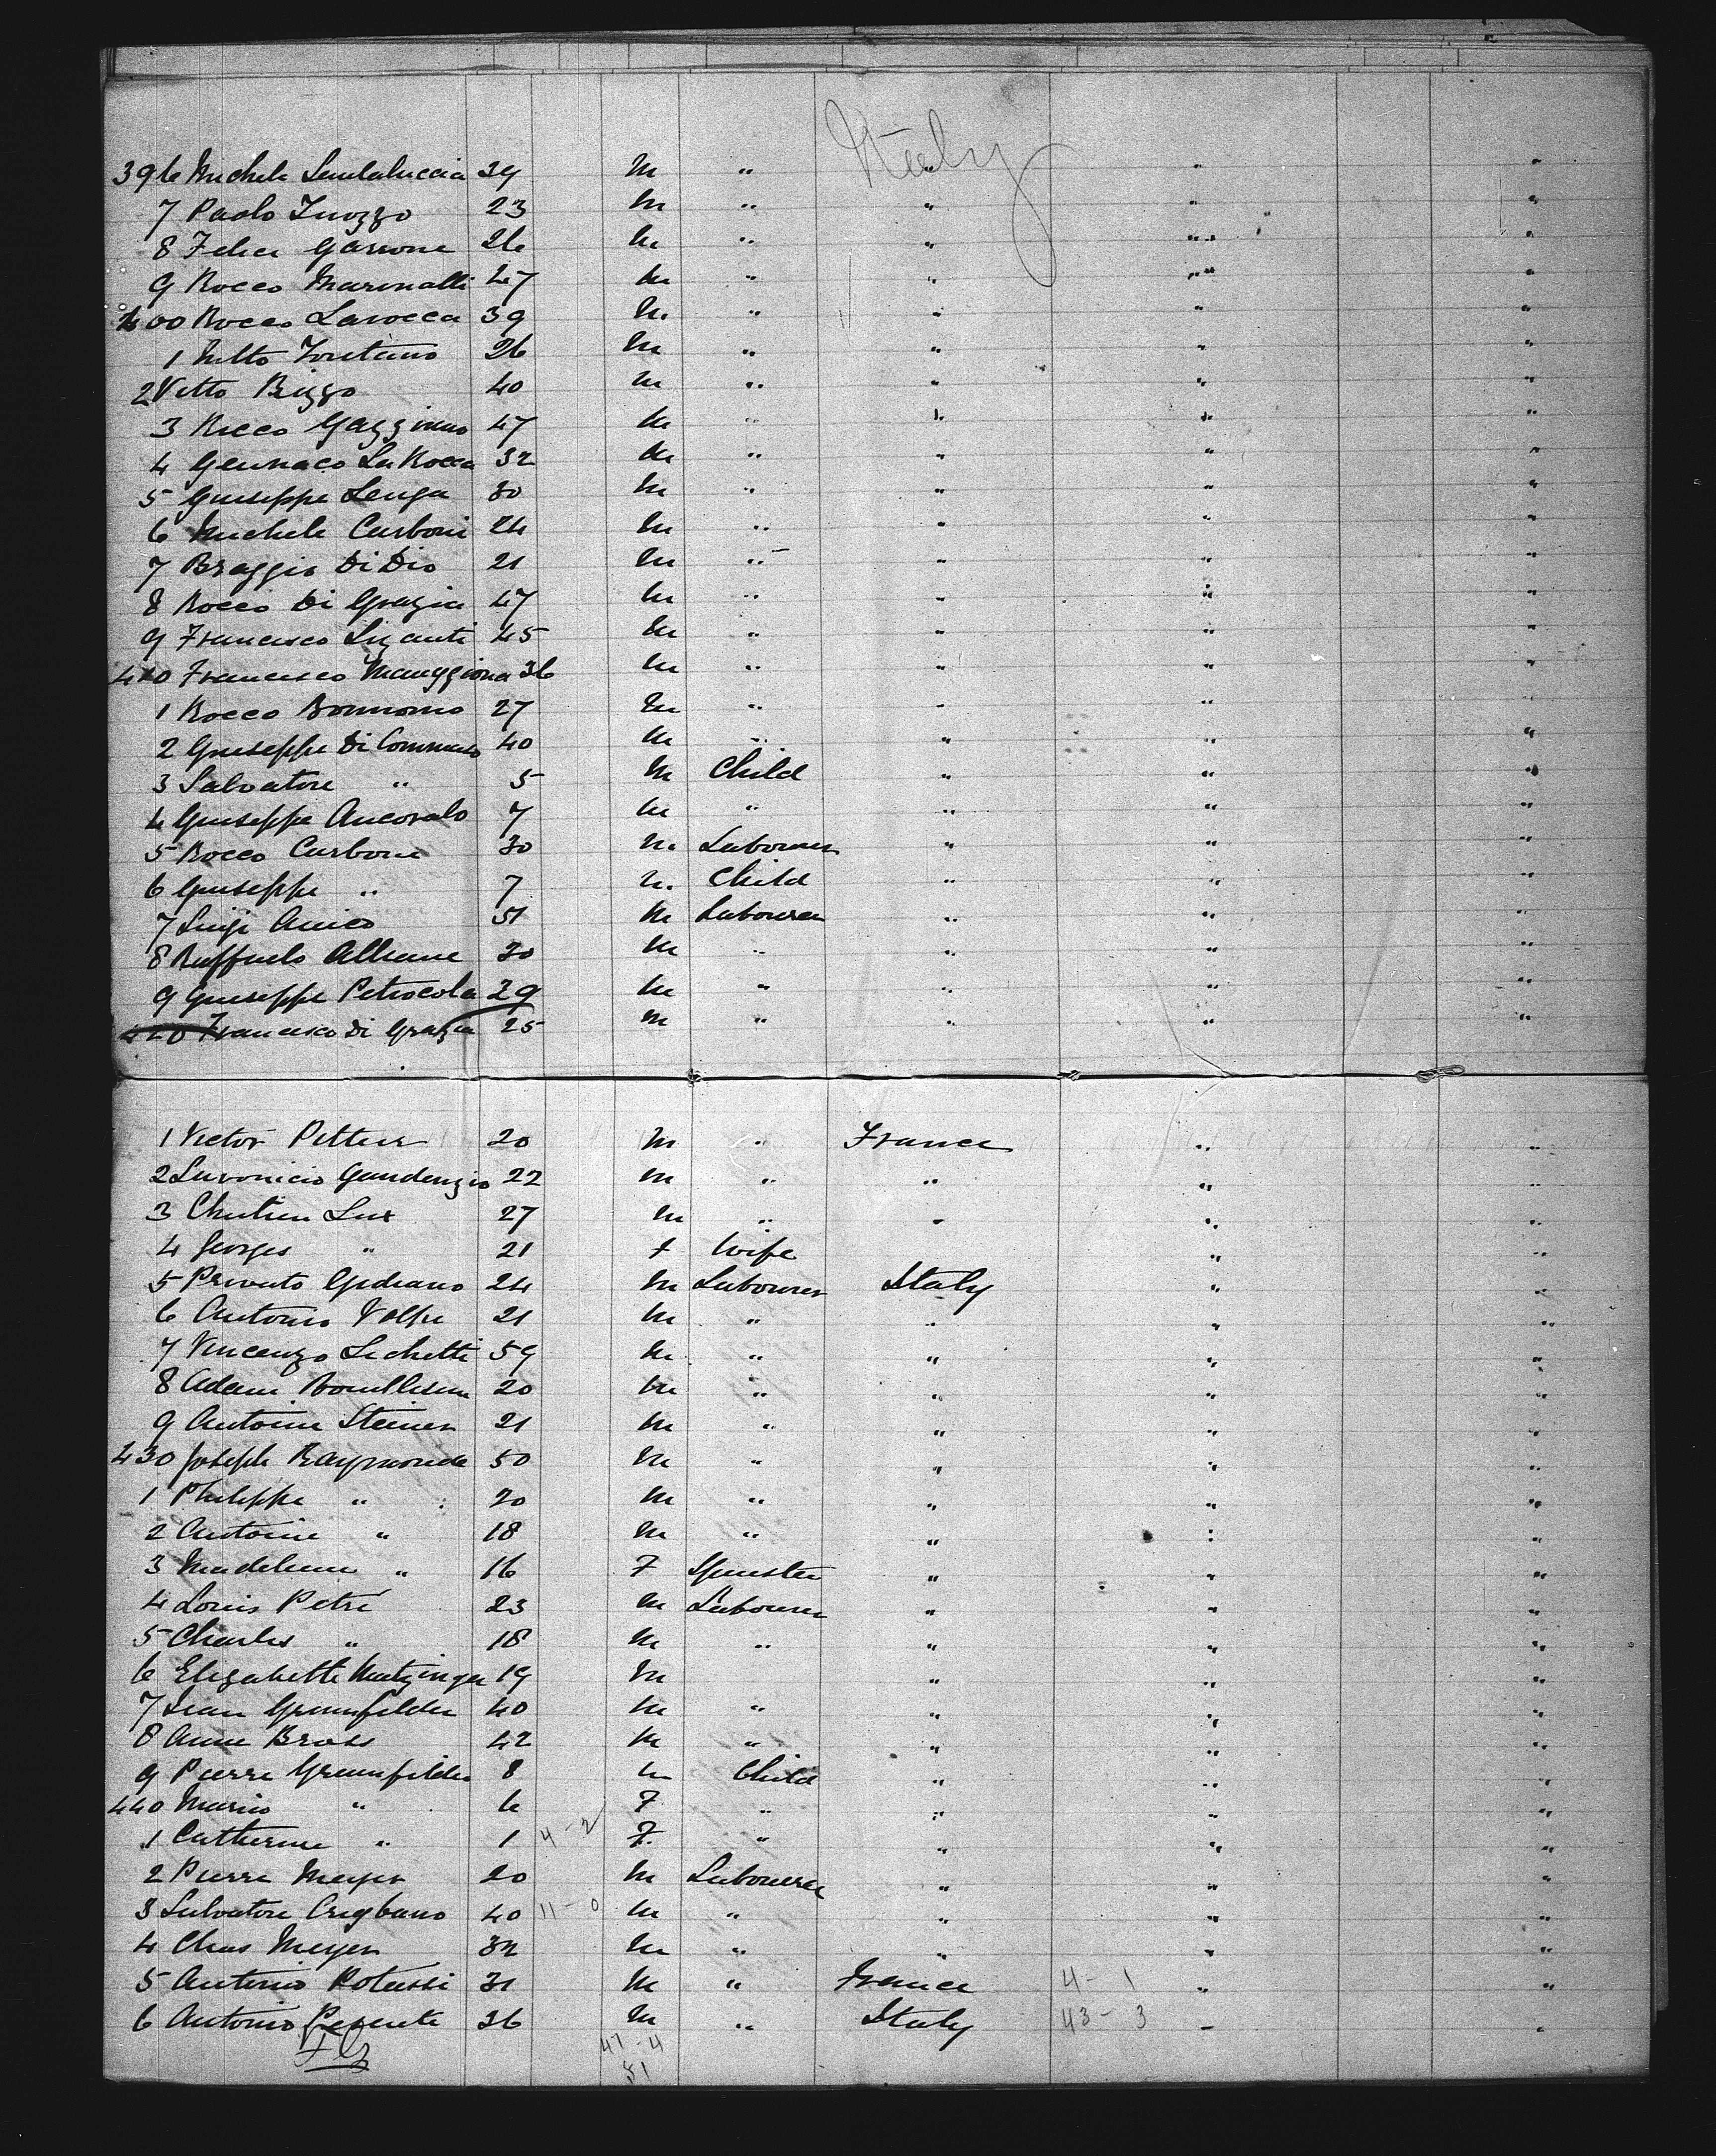 Italy
396 Michele Santaluccia 39 M " " " "
7 Paolo Inozzo 23 M " " " "
8 Felice Garrone 26 M " " " "
9 Rocco Marinalli 27 M " " " "
400 Rocco Larocca 39 M " " " "
1 26 M " " " "
2 Vitto Bizzo 40 M " " " "
3 Rocco 47 M " " " "
4 La Rocca 32 M " " " "
5 Giuseppe Lenga 30 M " " " "
6 Michele Carboni 24 M " " " "
7 Braggio Di Dio 21 M " " " "
8 Rocco Di Grazia 47 M " " " "
9 Francesco Lizanti 45 M " " " "
410 Francesco Manggiona 36 M " " " "
1 Rocco Bonnomo 27 M " " " "
2 Giuseppe Di 40 M " " " "
3 Salvatore " 5 M Child " " "
4 Giuseppe Ancoralo 7 M " " " "
5 Rocco Carbone 30 M Labourer " " "
6 Giuseppe " 7 M Child " " "
7 Luigi Amico 51 M Labourer " " "
8 Raffaelo 30 M " " " "
9 Giuseppe Petrocola 29 M " " " "
420 Francesco Di Grazia 25 M " " " "
1 Victor 20 M " France " "
2 Gaudenzio 22 M " " " "
3 Lux 27 M " " " "
4 Georges " 21 F Wife " "
5 24 M Labourer Italy " "
6 Antonio Volpe 21 M " " " "
7 Vincenzo Lichetti 59 M " " " "
8 Adam 20 M " " " "
9 Antoine Steiner 21 M " " " "
430 Joseph Raymonde 50 M " " " "
1 Philippe " 20 M " " " "
2 Antoine " 18 M " " " "
3 Madeleine " 16 F Spinster " " "
4 Louis Petri 23 M Labourer " " "
5 Charles " 18 M " " " "
6 Elizabette Matzinger 19 M " " "
7 Jean Grunfelder 40 M " " " "
8 Anne Bross 42 M " " " "
9 Pierre Grunfelder 8 M Child " " "
440 Marie " 6 F " " " "
1 Catherine " 1 4 - 2 F " " " "
2 Pierre Meyer 20 M Labourer " " "
3 Salvatore 40 11 - 0 M " " " "
4 Chas Meyer 32 M " " " "
5 Antonio Rotassi 31 M " France 4 - 1 " "
6 Antonio 36 M " Italy 43 - 3 " "
47 - 4
51